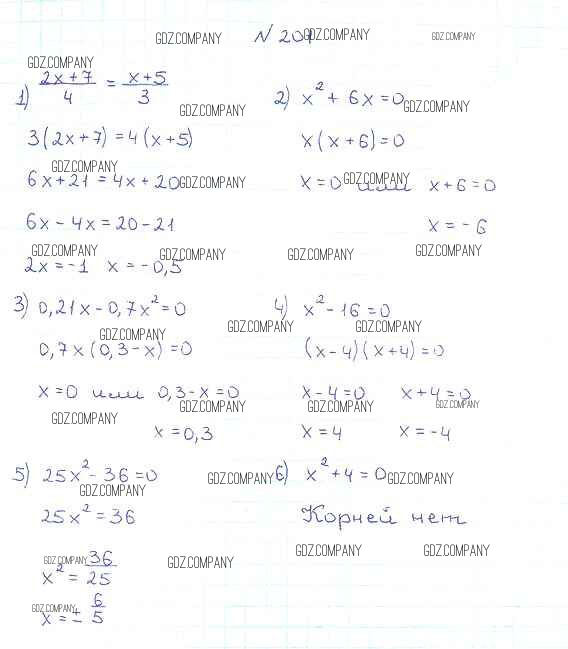 GDZ.COMPANY № 201 GDZ.COMPANY GDZ.COMPANY
GDZ.COMPANY
1) (2x+7)/4 = (x+5)/3
GDZ.COMPANY
3(2x+7)=4(x+5)
GDZ.COMPANY
6x+21=4x+20 GDZ.COMPANY
6x-4x=20-21
GDZ.COMPANY GDZ.COMPANY
2x=-1 x=-0,5
2) x²+6x=0 GDZ.COMPANY
x(x+6)=0
GDZ.COMPANY
x=0 или x+6=0
x=-6
GDZ.COMPANY GDZ.COMPANY
3) 0,21x-0,7x²=0
GDZ.COMPANY
0,7x(0,3-x)=0
x=0 или 0,3-x=0
GDZ.COMPANY GDZ.COMPANY
x=0,3
4) x²-16=0
GDZ.COMPANY GDZ.COMPANY
(x-4)(x+4)=0
x-4=0 x+4=0
GDZ.COMPANY GDZ.COMPANY
x=4 x=-4
5) 25x²-36=0
GDZ.COMPANY GDZ.COMPANY
25x²=36
GDZ.COMPANY GDZ.COMPANY
x²=36/25
GDZ.COMPANY
x=±6/5
6) x²+4=0 GDZ.COMPANY
Корней нет
GDZ.COMPANY GDZ.COMPANY